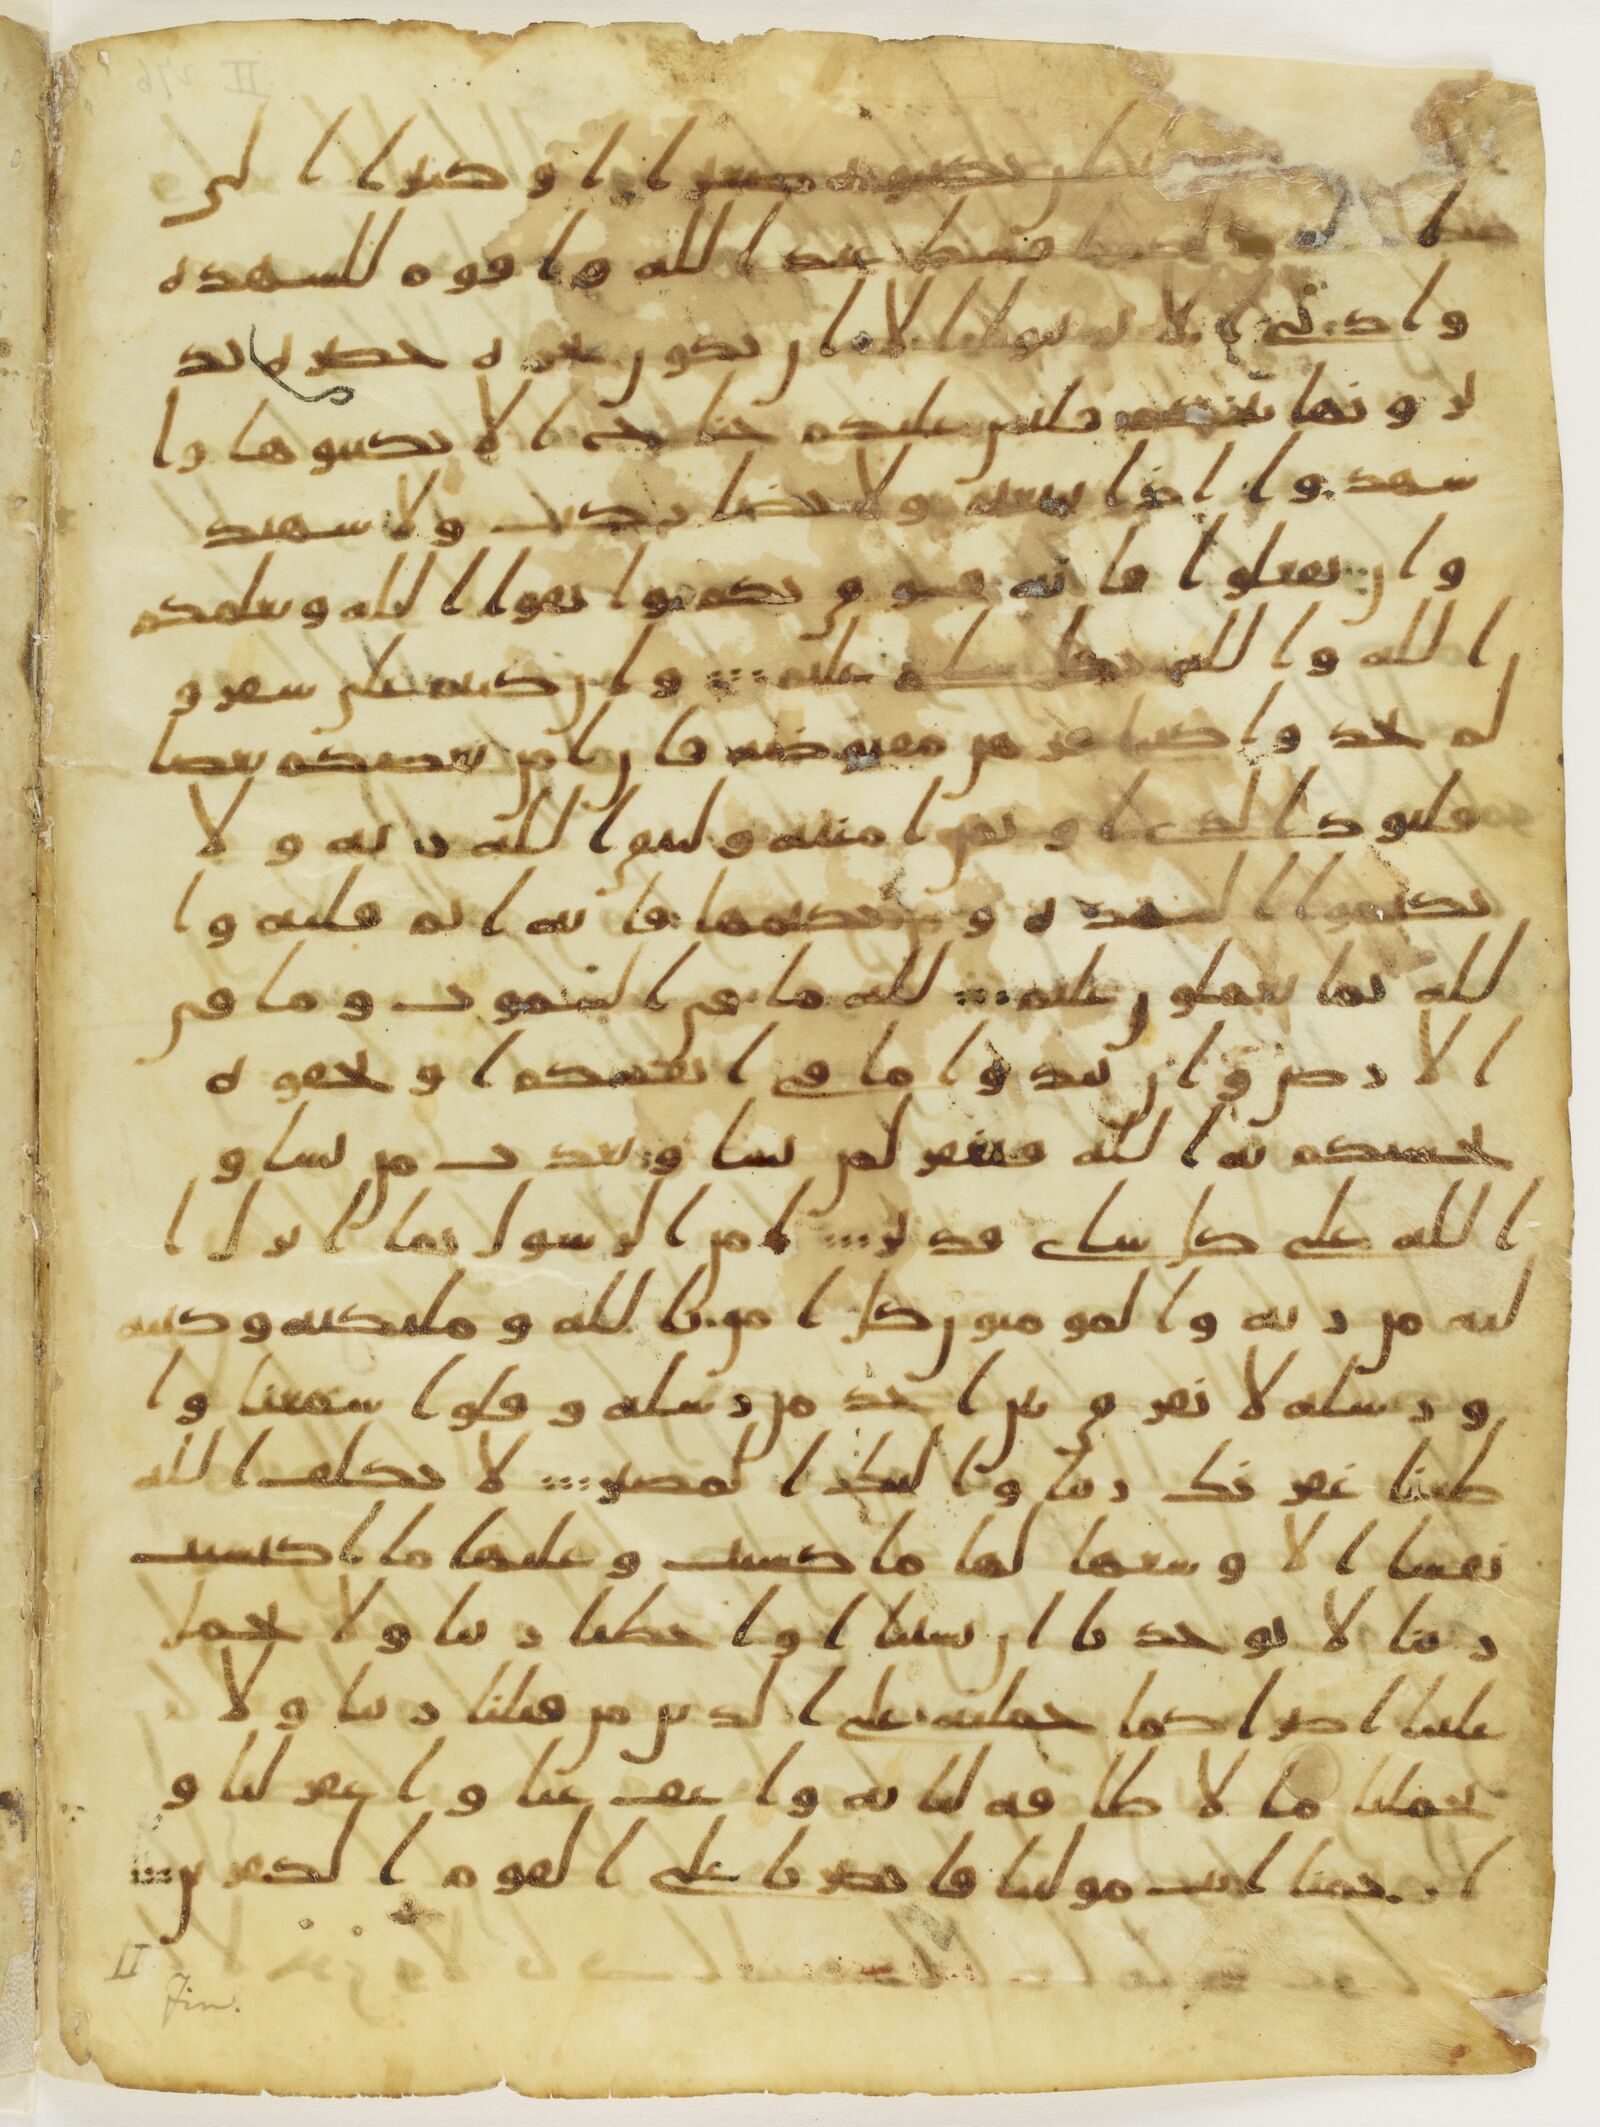 ان تكتبوه صغيرا او كبيرا الى
ا قسط عند الله واقوم للشهده
وادنى الا ترتبوا الا ان تكون تجره حضره تد
يرونها بينكم فليس عليكم جناح الا تكتبوها وا
شهدوا اذا تبيعتم ولا يضار كتب ولا شهيد
وان تفعلوا فانه فسوق بكم واتقوا الله ويعلمكم
الله والله بكل شى عليم ⁘ وان كنتم على سفر و
لم تجدوا كتبا فرهن مقبوضه فان امن بعضكم بعضا
فليود الذى اوتمن امنته وليتق الله ربه ولا
تكتموا الشهده ومن يكتمها فانه اثم قلبه وا
لله بما تعملون عليم ⁘ لله ما فى السموت وما فى
الارض وان تبدوا ما فى انفسكم او تخفوه
يحسبكم به الله فيغفر لمن يشا ويعذب من يشا و
الله على كل شى قدير ⁘ امن الرسول بما انزل ا
ليه من ربه والمومنون كل امن بالله وملئكته وكتبه
ورسله لا نفرق بين احد من رسله وقلوا سمعنا وا
طعنا غفرنك ربنا واليك المصير ⁘ لا يكلف الله
نفسا الا وسعها لها ما كسبت وعليها ما اكتسبت
ربنا لا توخذنا ان نسينا او اخطينا ربنا ولا تحمل
علينا اصرا كما حملته على الذين من قبلنا ربنا ولا
تحملنا ما لا طاقه لنا به واعف عنا واغفر لنا و
ارحمنا انت مولينا فانصرنا على القوم الكفرين ⁘
II
Fin.